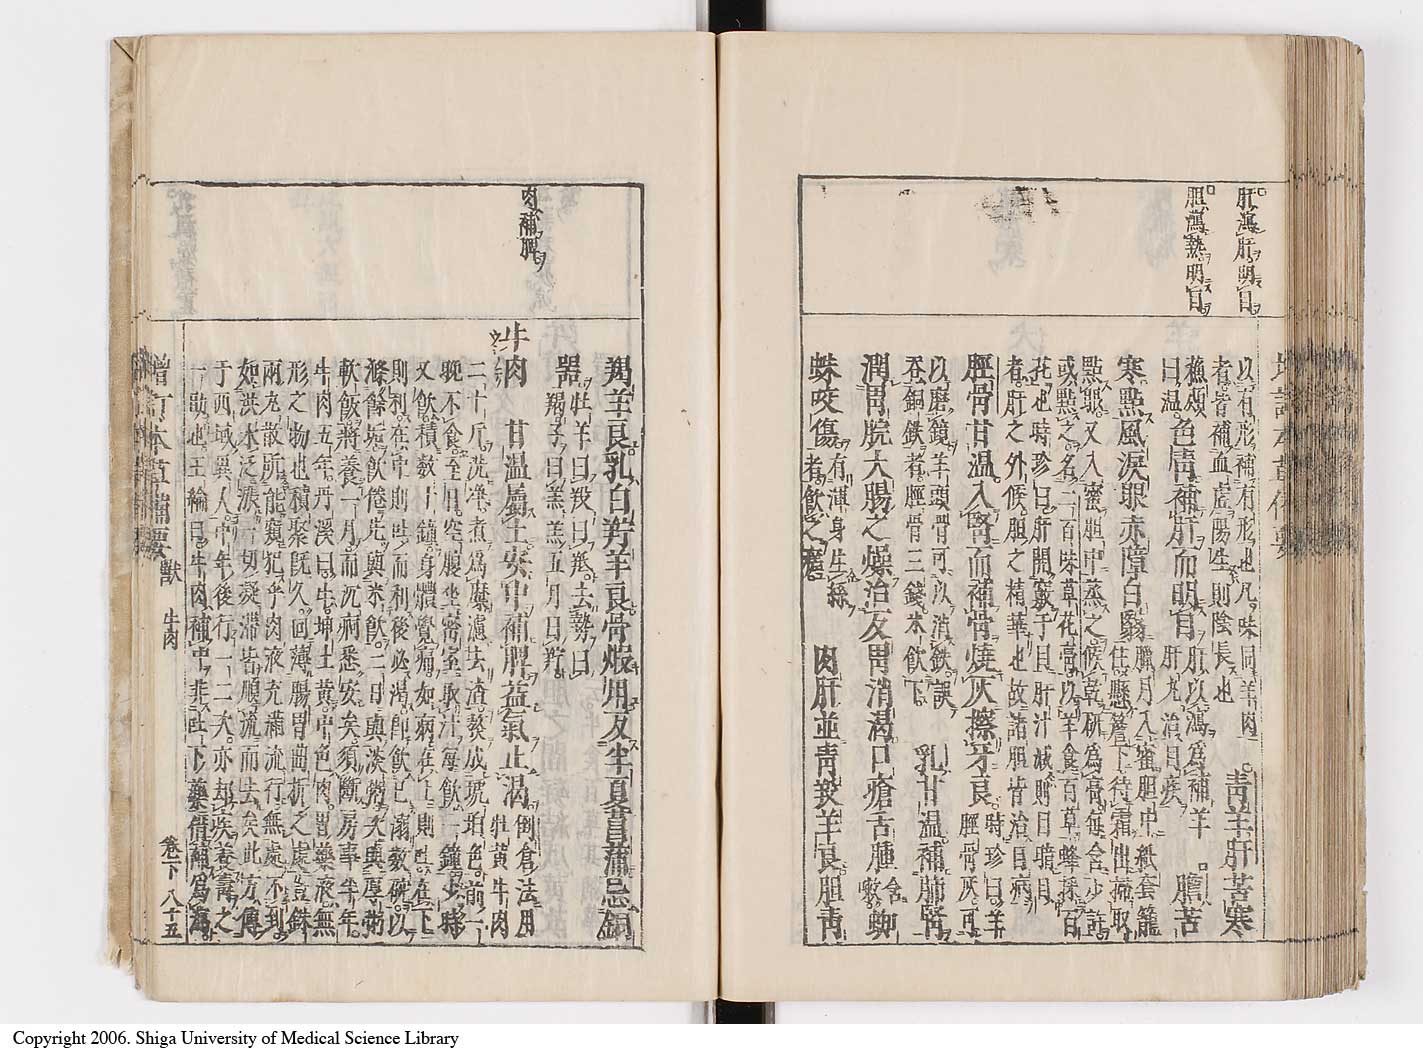 肝瀉肝明目
膽瀉熱明目
以有形補有形也凡味同羊肉
者皆補血虛陽生則陰長也
青羊肝苦寒
蘇頌
曰溫色青補肝而明目肝以瀉爲補羊
肝尤治目疾
膽苦
寒點風淚眼赤障白翳臘月入蜜膽中紙套籠
住懸簷下待霜出掃取
點眼又入蜜膽中蒸之候乾研爲膏每含少許
或點之名二百味草花膏以羊食百草蜂採百
花也時珍曰肝開竅于目肝汁減則目暗目
者肝之外候膽之精華也故諸膽皆治目病
脛骨甘溫入腎而補骨燒灰擦牙良時珍曰羊
脛骨灰可
以磨鏡羊頭骨可以消鐵誤
吞銅鐵者脛骨三錢米飲下
乳甘溫補肺腎
潤胃脘大腸之燥治反胃消渴口瘡舌腫含
漱蜘
蛛咬傷有渾身生絲
者飲之瘥
肉肝並青羖羊良膽青
羯羊良乳白羜羊良骨煅用反半夏菖蒲忌銅
器牡羊曰羖曰羝去勢曰
羯子曰羔羔五月曰羜
肉補脾
牛肉
甘溫屬土安中補脾益氣止渴倒倉法用
牡黃牛肉
二十斤洗淨煮爲糜濾去渣熬成琥珀色前一
晚不食至日空腹坐密室取汁每飲一鐘少時
又飲積數十鐘身體覺痛如病在上則吐在下
則利在中則吐而利後必渴卽飲已溺數碗以
滌餘垢飲倦先與米飲二日與淡粥次與厚粥
軟飯將養一月而沉痾悉安矣須斷房事半年
牛肉五年丹溪曰牛坤土黃中色肉胃藥液無
形之物也積聚旣久回薄腸胃曲折之處豈銖
兩丸散所能窺犯乎肉液充滿流行無處不到
如洪水泛漲一切凝滯皆順流而去矣此方傳
于西域異人中年後行一二次亦却疾養壽之
一助也王綸曰牛肉補中非吐下藥借補爲瀉
增訂本草備要
獸
牛肉
卷下
八十五
Copyright 2006. Shiga University of Medical Science Library